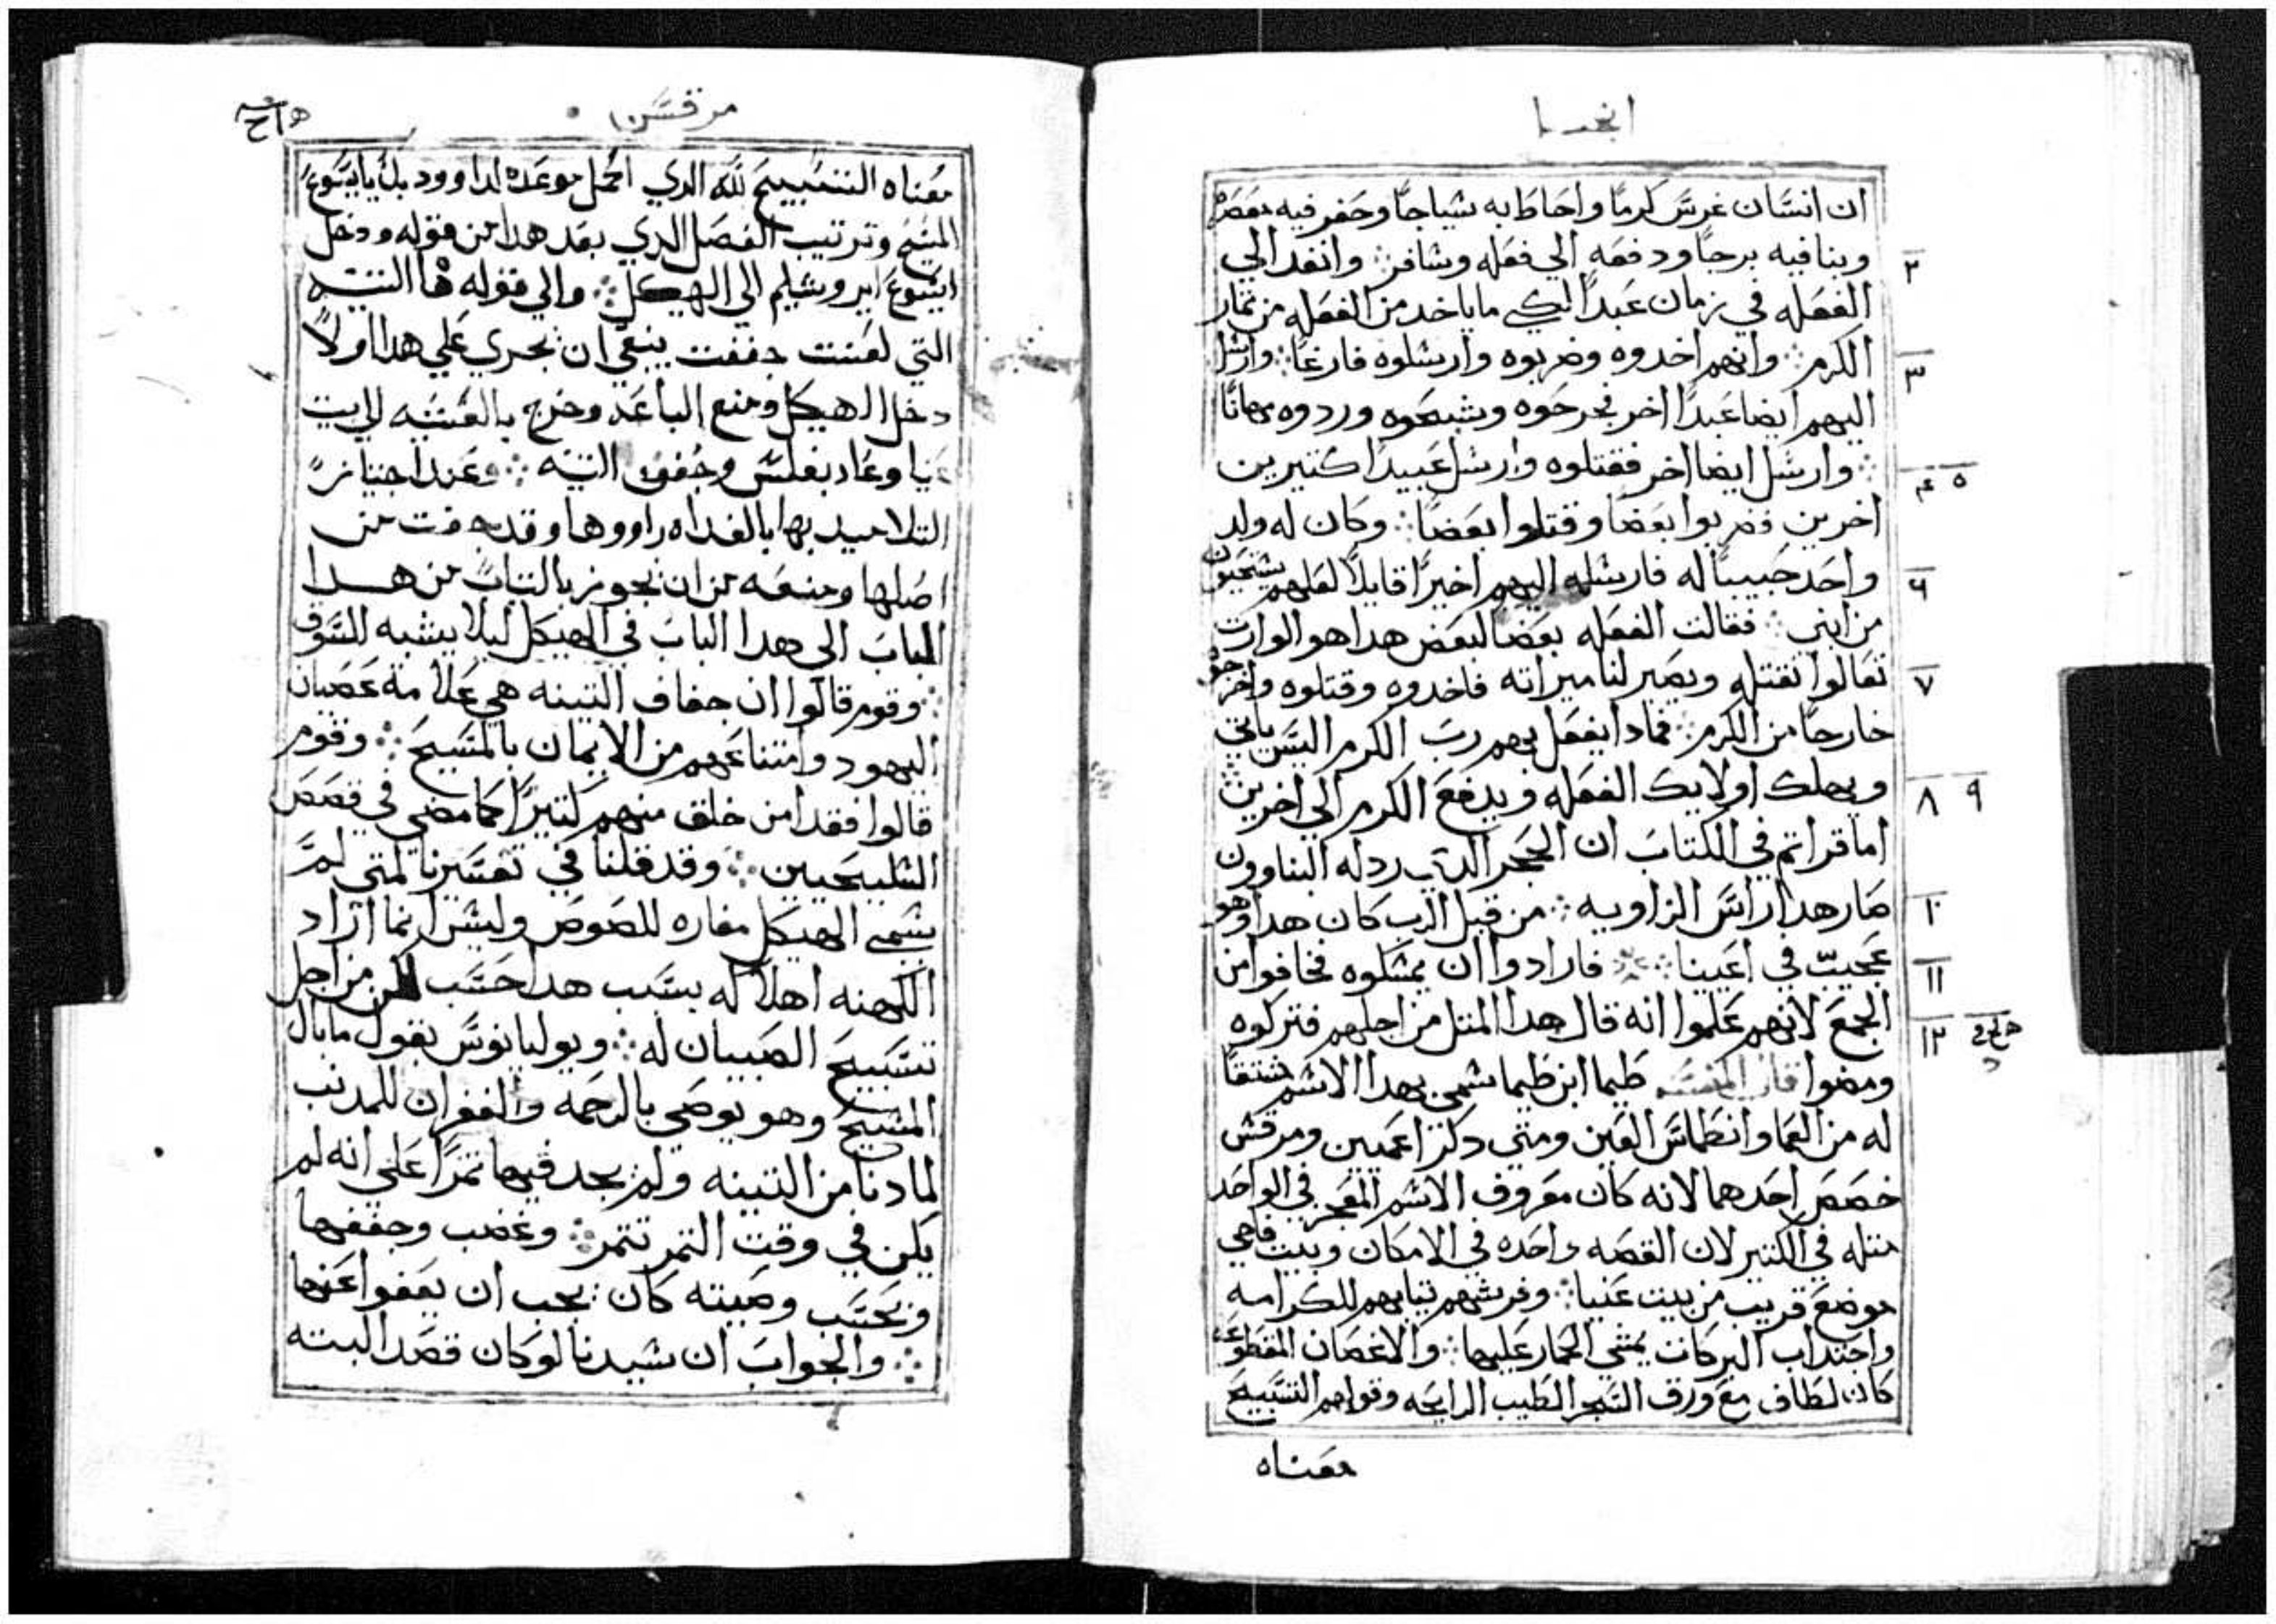 انجيل
ان انسان غرس كرمًا واحاط به سياجًا وحفر فيه معصره
وبنا فيه برجًا ودفعه الي فعله وسافر ۞ وانفد الي
٢
الفعله في زمان عبدًا لكي ما ياخد من الفعله من تمار
الكرم ۞ وانهم اخدوه وضربوه وارسلوه فارغًا ۞ وارسل
٣
اليهم ايضا عبدًا اخر فجرحوه وشبحوه وردوه مهانًا
۞ وارسل ايضا اخر فقتلوه وارسل عبيدًا كتيرين
٤ ٥
اخرين فضربوا بعضًا وقتلوا بعضًا ۞ وكان له ولد
واحد حبيبًا له فارسله اليهم اخيرًا قايلًا لعلهم يستحيون
٦
من ابني ۞ فقالت الفعله بعضًا لبعض هدا هو الوارت
تعالوا نقتله ويصير لنا ميراته فاخدوه وقتلوه واخرجوه
٧
خارجًا من الكرم ۞ فمادا يفعل بهم رب الكرم اليس ياتي
ويهلك اولايك الفعله ويدفع الكرم الي اخرين
٨ ٩
اما قراتم في الكتاب ان الحجر الدي ردله البناوون
صار هدا راس الزاويه ۞ من قبل الرب كان هدا وهو
١٠
عجيب في اعيننا ۞ فارادوا ان يمسكوه فخافوا من
١١
الجمع لانهم علموا انه قال هدا المتل من اجلهم فتركوه
١٢
ومضوا قال المفسر طيما ابن طيما سمي بهدا الاسم مشتقًا
له من العما وانطماس العين ومتي دكر اعميين ومرقس
خصص احدهما لانه كان معروف الاسم المعجز في الواحد
متله في الكتير لان القصه واحده في الامكان وبيت فاجي
موضع قريب من بيت عنيا ۞ وفرشهم تيابهم للكرامه
واجتداب البركات بمشي الحمار عليها ۞ والاغصان المقطوعه
كان لطاف مع ورق الشجر الطيب الرايحه وقولهم التسبيح
معناه
مرقس
معناه التسبيح لله الدي اكمل موعده لداوود بك يا ايسوع
المسيح وترتيب الفصل الدي بعد هدا من قوله ودخل
ايسوع ايروشليم الي الهيكل ۞ والي قوله ها التينه
التي لعنت جففت ينبغي ان يجري علي هدا اولًا
دخل الهيكل ومنع الباعه وخرج بالعشيه لبيت
عنيا وعاد بغلس وجفف التينه ۞ وعند اجتياز
التلاميد بها بالغداه راووها وقد جفت من
اصلها ومنعه من ان يجوز بالتياب من هدا
الباب الي هدا الباب في الهيكل ليلا يشبه للسوق
۞ وقوم قالوا ان جفاف التينه هي علامة عصيان
اليهود وامتناعهم من الايمان بالمسيح ۞ وقوم
قالوا فقد امن خلق منهم كتيرًا كما مضي في قصص
السليحيين ۞ وقد قلنا في تفسيرنا لمتي لم
يسمي الهيكل مغاره للصوص وليس انما اراد
الكهنه اهلاكه بسبب هدا حسب لكن من اجل
تسبيح الصبيان له ۞ ويوليانوس يقول ما بال
المسيح وهو يوصي بالرحمه والغفران للمدنب
لما دنا من التينه ولم يجد فيها تمرًا علي انه لم
يكن في وقت التمر تتمر ۞ وغضب وجففها
وبحسب وصيته كان يجب ان يعفوا عنها
۞ والجواب ان سيدنا لو كان قصد البته